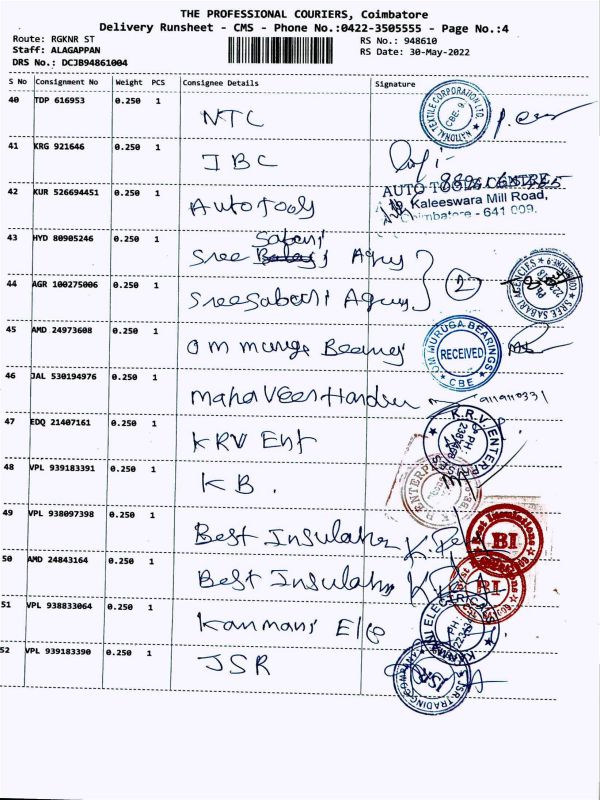 THE PROFESSIONAL COURIERS, Coimbatore
Delivery Runsheet - CMS - Phone No.:0422-3505555 - Page No.:4
Route: RGKNR ST
RS No.: 948610
Staff: ALAGAPPAN
RS Date: 30-May-2022
DRS No.: DCJB94861004
S No Consignment No Weight PCS Consignee Details Signature
40 TDP 616953 0.250 1 NTC
NATIONAL TEXTILE CORPORATION LTD. CBE-9
41 KRG 921646 0.250 1 JBC
42 KUR 526694451 0.250 1 Autotools
AUTO TOOLS CENTRE
Kaleeswara Mill Road,
Coimbatore - 641 009.
43 HYD 80905246 0.250 1 Sree Sabari
44 AGR 100275006 0.250 1 Sree Sabari
2
SREE SABARI AGENCIES
45 AMD 24973608 0.250 1 Om muruga Bearings
OM MURUGA BEARINGS RECEIVED CBE
46 JAL 530194976 0.250 1 mahaveer
47 EDQ 21407161 0.250 1 KRV Ent
K.R.V. ENTERPRISES
48 VPL 939183391 0.250 1 KB.
49 VPL 938097398 0.250 1 Best Insulation
Best Insulations BI
50 AMD 24843164 0.250 1 Best Insulation
BI
51 VPL 938833064 0.250 1 Kanmani Ele
52 VPL 939183390 0.250 1 JSR
JSR TRADING COMPANY JSR